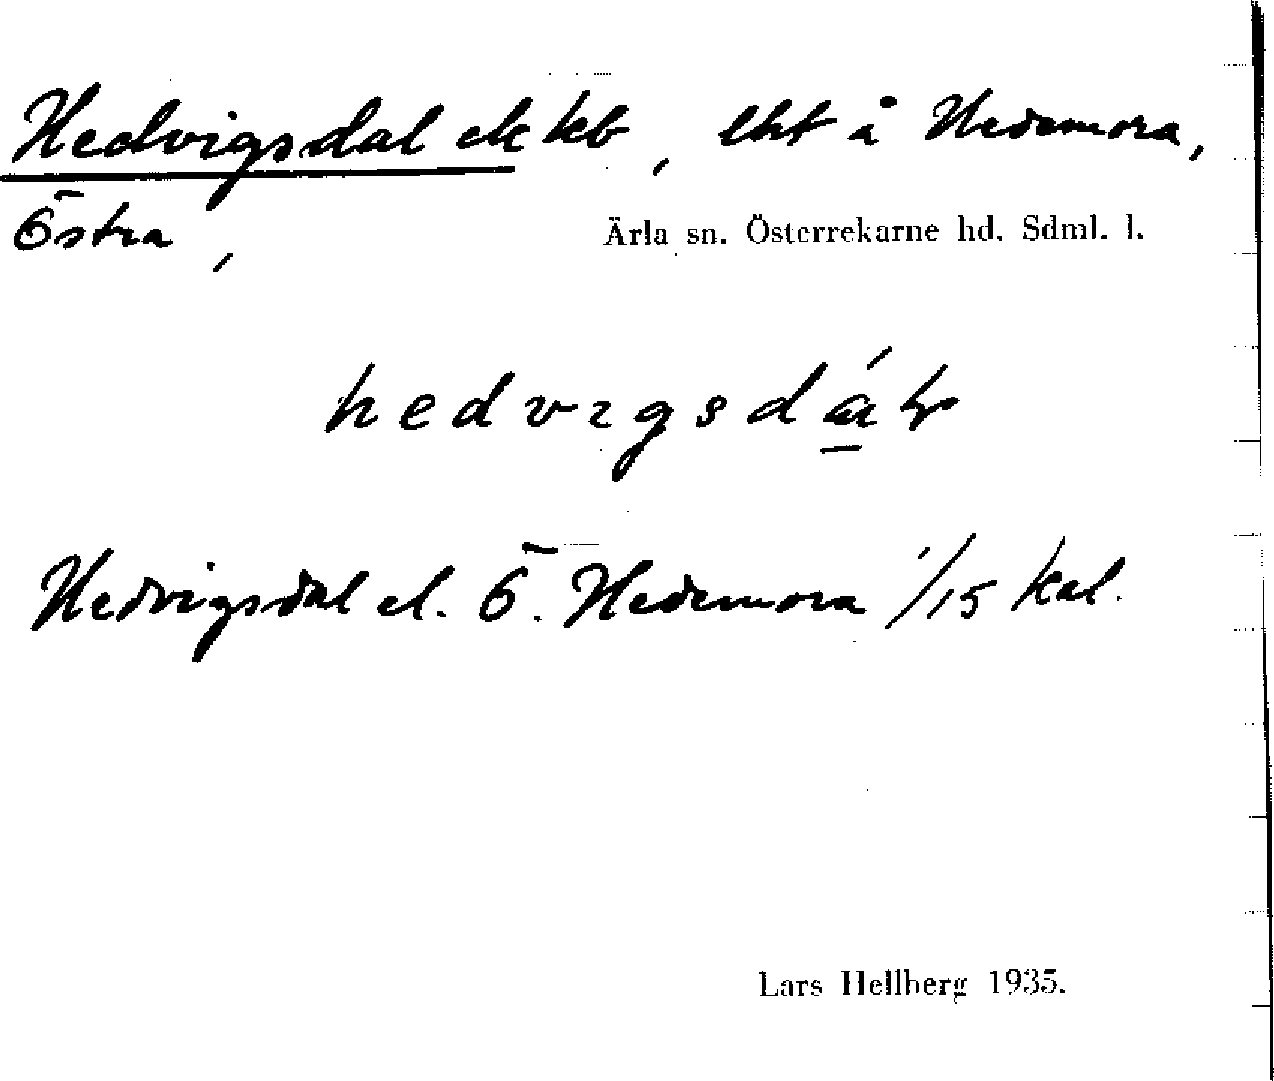 Hedvigsdal ek kb, lht å Hedemora,
Östra, Ärla sn. Österrekarne hd. Sdml. l.
hedvigsdál
Hedvigsdal el. Ö. Hedemora 1/15 kal.
Lars Hellberg 1935.